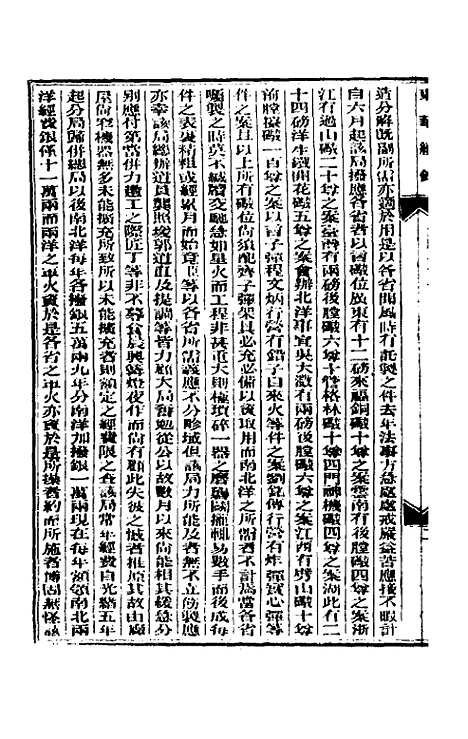 造分解既劃所需亦適於用是以各省聞風時有託製之件去年法事方急處處戒嚴益苦應接不暇計
自六月起該局撥應各省以曾礮位廣東有十二磅來福銅礮十尊之案雲南有後膛礮四尊之案浙
江有過山礮二十尊之案臺灣有兩磅後膛礮六尊十管格林礮十尊四門神機礮四尊之案湖北有二
十四磅洋生鐵開花礮五尊之案會辦北洋事宜吳大澂有兩磅後膛礮六尊之案江西有劈山礮十尊
前膛擡礮一百尊之案以言子彈程文炳行營有銅子自來火等件之案劉銘傳行營有炸彈實心彈等
件之案且以上所有礮位尚須配齊子彈架具必充必備以資取用而南北洋之所需者不計焉當各省
囑製之時莫不緘牘交馳急如星火而工程非甚重大則極瑣碎一器之磨礲圓揗輒易數手而後成每
件之表裏精粗或經累月而始竟臣等以各省所需義應不分畛域但該局力所能及者無不立筋製應
亦幸該局總辦道員龔照瑗郭道直及提調等皆力顧大局奮勉從公以故數月以來尚能相其緩急分
別應付第當併力趕工之際匠丁等非不晷食晨興籌燈夜作而尚有顧此失彼之慮者推原其故由廠
屋尚窄機器無多未能擴充所致所以未能擴充者則額定之經費限之查該局常年經費自光緒五年
起分局歸併總局以後南北洋每年各撥銀五萬兩九年分南洋加撥銀一萬兩現在每年額領南北兩
洋經費銀僅十一萬兩而兩洋之軍火資於是各省之軍火亦資於是所操者約而所施者博固無怪